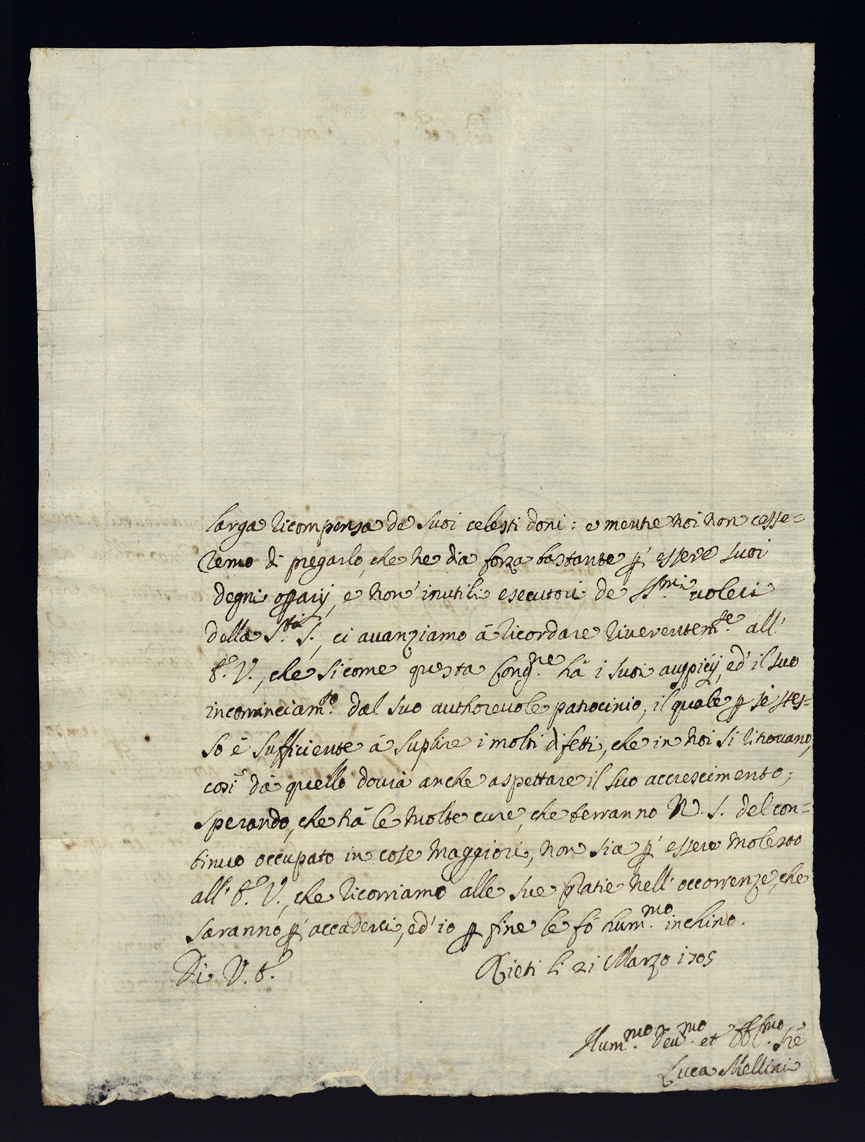 larga ricompensa de suoi celesti doni: e mentre noi non cesse=
remo di pregarlo, che ne dia forza bastante p' essere suoi
degni opparij, e non' inutili esecutori de SS.mi voleri
della S.tà S., ci avanziamo à ricordare riverentem.te all'
E. V., che sicome questa Cong.ne hà i suoi auspicij, ed' il suo
incominciam.to dal suo authorevole patrocinio, il quale p se stes=
so è sufficiente à suplire i molti difetti, che in noi si ritrovano,
così dà quello dovrà anche aspettare il suo accrescimento;
sperando, che frà le molte cure, che terranno N. S. del con=
tinuo occupato in cose maggiori, non sia p' essere molesto
all' E. V., che ricorriamo alle sue gratie nell' occorrenze, che
saranno p' accaderci, ed' io p fine le fò hum.mo inchino.
Di V. E.
Rieti li 21 Marzo 1705
Hum.mo Dev.mo et Obl.mo
Luca Mellini